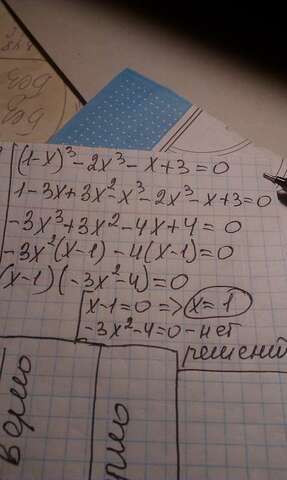 (1-x)³-2x³-x+3=0
1-3x+3x²-x³-2x³-x+3=0
-3x³+3x²-4x+4=0
-3x²(x-1)-4(x-1)=0
(x-1)(-3x²-4)=0
x-1=0 => x=1
-3x²-4=0-нет
решений
верно